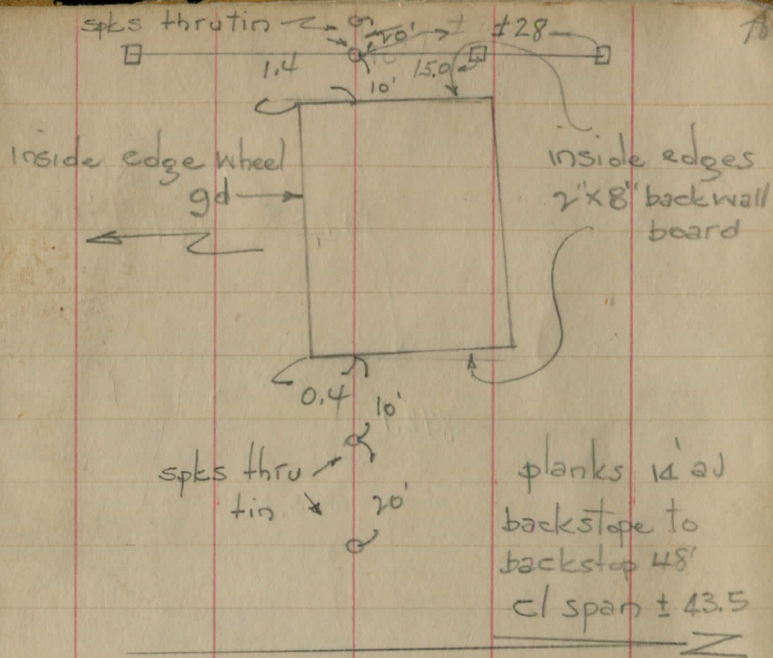 spks thru tin
20'
± 28
1.4
10'
15.0
inside edge wheel
gd
inside edges
2"x8" backwall
board
0.4
10'
spks thru
tin
20'
planks 14' av
backstope to
backstop 48'
c/ span ± 43.5